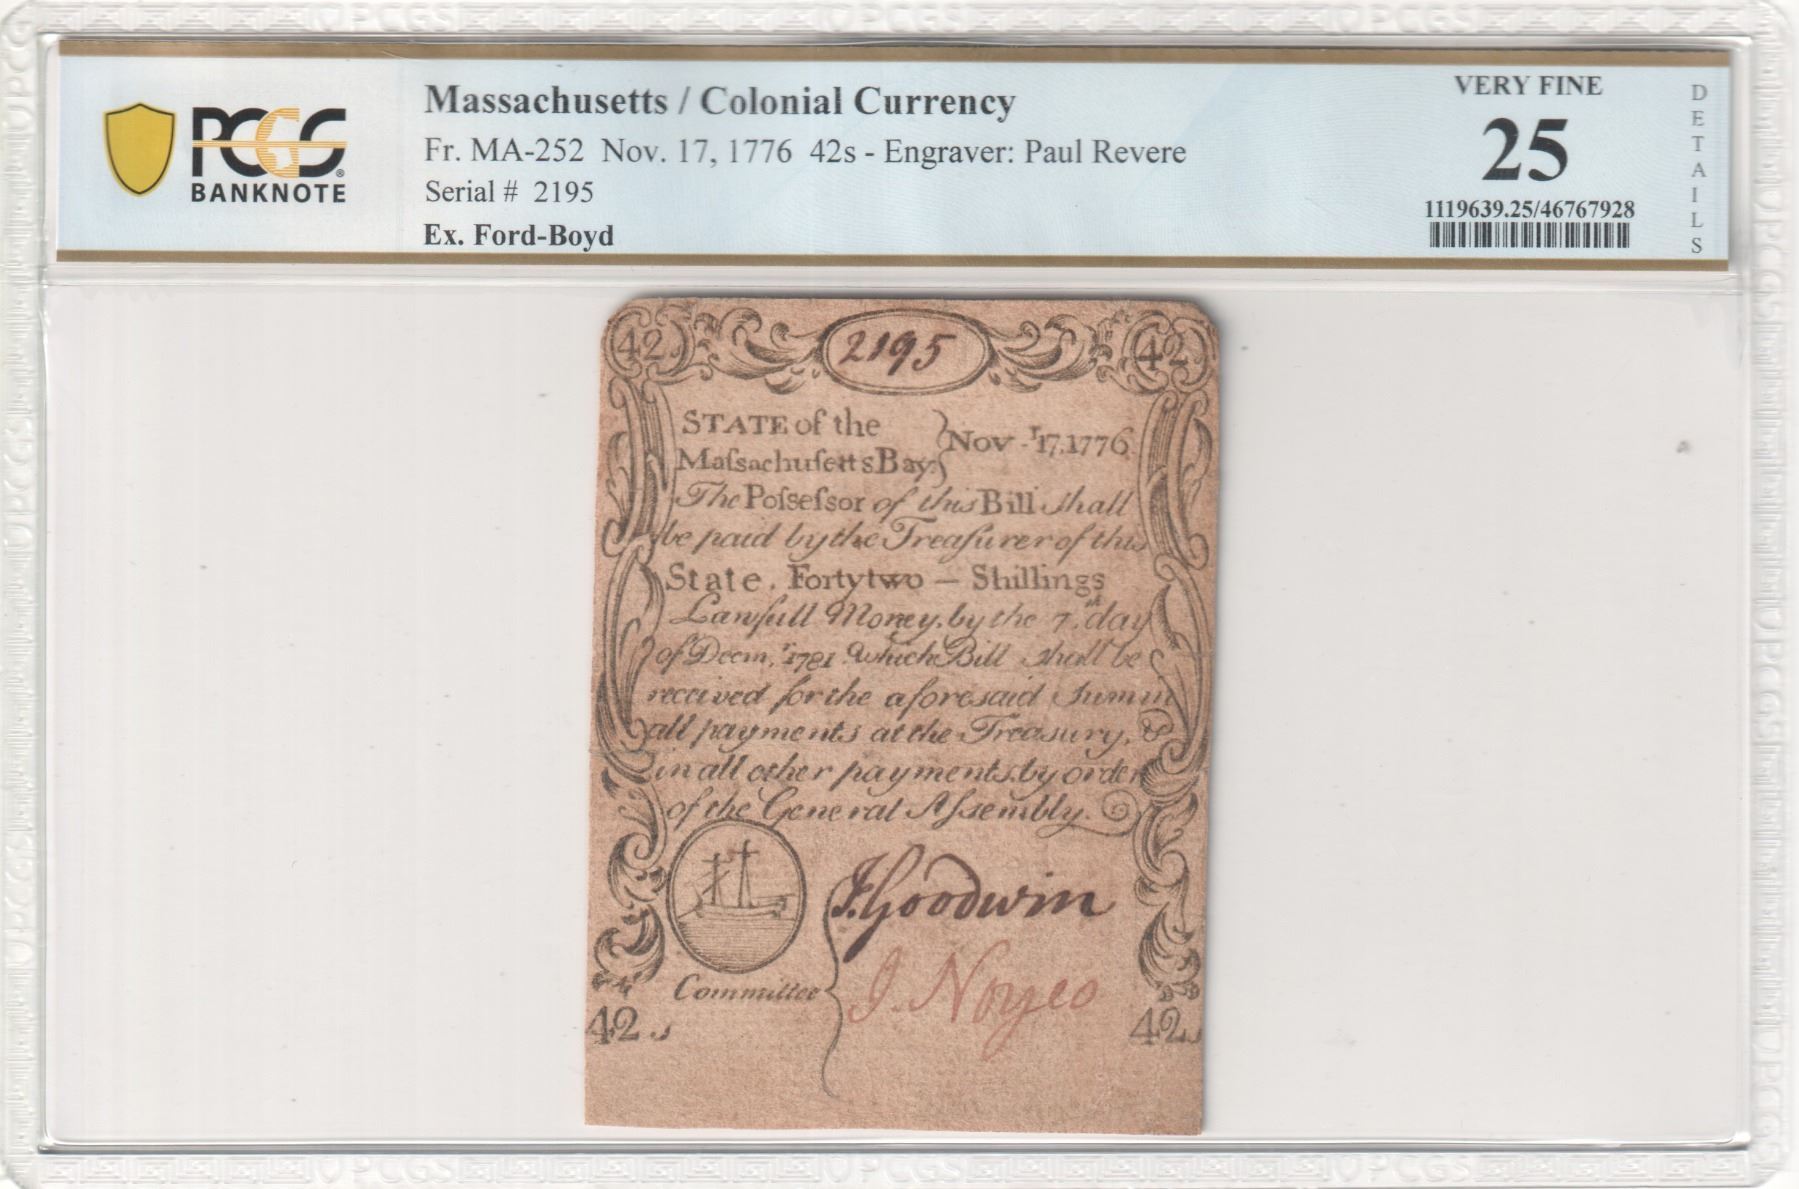 PCGS
BANKNOTE
Massachusetts / Colonial Currency
Fr. MA-252 Nov. 17, 1776 42s - Engraver: Paul Revere
Serial # 2195
Ex. Ford-Boyd
VERY FINE
25
1119639.25/46767928
DETAILS
42s 2195 42s
STATE of the
Maſsachuſetts Bay. } Nov.r 17. 1776.
The Poſseſsor of this Bill shall
be paid by the Treaſurer of this
State. Fortytwo — Shillings
Lawfull Money. by the 7.th day
of Decm,r 1781 which Bill shall be
received for the aforesaid Summ in
all payments at the Treasury. &
in all other payments by order
of the General Aſsembly.
J. Goodwin
Committee
J. Noyes
42s 42s